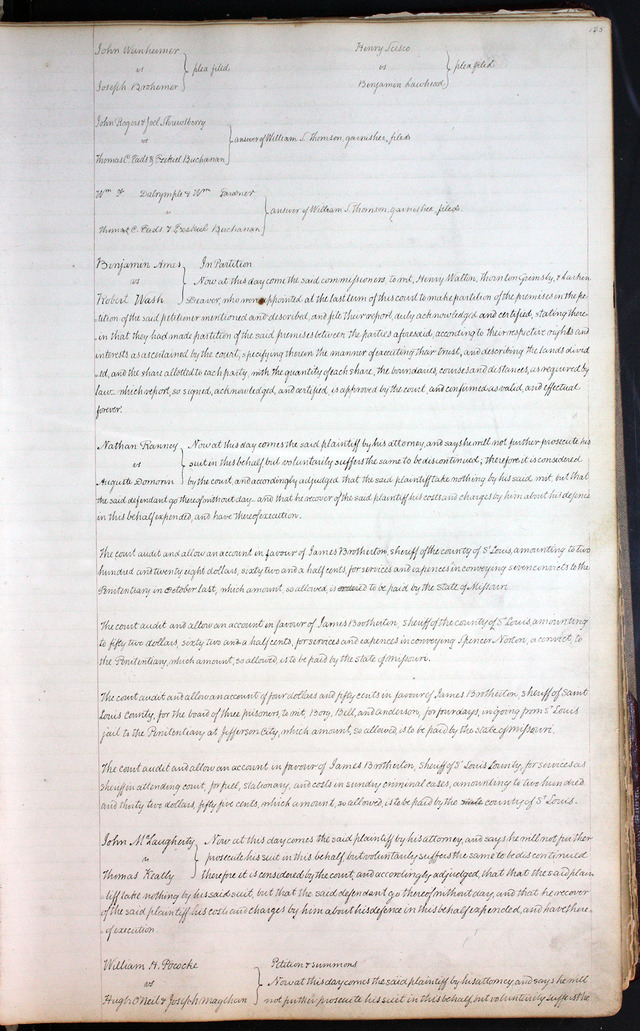 John Weinheimer
vs } plea filed
Joseph Broheimer
Henry
vs } plea filed
Benjamin Lawhead
John Rogers & Joel Shrewsberry
vs } answer of William S. Thomson, garnishee, filed
Thomas C. Eads & Ezekiel Buchanan
Wm Dalrymple & Wm Gardner
vs } answer of William S. Thomson, garnishee, filed.
Thomas C. Eads & Ezekiel Buchanan
Benjamin Ames } In Partition
vs Now at this day come the said commissioners, to wit, Henry Walton, Thornton Grimsby, & Larkin
Robert Wash Deaver, who were appointed at the last term of this court to make partition of the premises in the pe-
tition of the said petitioner mentioned and described, and file their report, duly acknowledged and certified, stating there-
in that they had made partition of the said premises between the parties aforesaid, according to their respective rights and
interests as ascertained by the court, specifying therein the manner of executing their trust, and describing the lands divid-
ed, and the share allotted to each party, with the quantity of each share, the boundaries, courses and distances, as required by
law which report, so signed, acknowledged, and certified, is approved by the court, and confirmed as valid, and effectual
forever.
Nathan Ranney } Now at this day comes the said plaintiff by his attorney, and says he will not further prosecute his
vs suit in this behalf but voluntarily suffers the same to be discontinued; therefore it is considered
Auguste Domoron by the court, and accordingly adjudged that the said plaintiff take nothing by his said writ, but that
the said defendant go thereof without day and that he recover of the said plaintiff his costs and charges by him about his defence
in this behalf expended, and have thereof execution.
The court audit and allow an account in favour of James Brotherton, sheriff of the county of St Louis, amounting to two
hundred and twenty eight dollars, sixty two and a half cents, for services and expences in conveying seven convicts to the
Penitentiary in October last, which amount, so allowed, is ordered to be paid by the State of Missouri.
The court audit and allow an account in favour of James Brotherton, sheriff of the county of St Louis, amounting
to fifty two dollars, sixty two and a half cents, for services and expences in conveying Spencer Norton, a convict, to
the Penitentiary, which amount, so allowed, is to be paid by the state of Missouri.
The court audit and allow an account of four dollars and fifty cents in favour of James Brotherton, sheriff of Saint
Louis County, for the board of three prisoners, to wit, Borg, Bell, and Anderson, for four days, in going from St Louis
jail to the Penitentiary at Jefferson City, which amount, so allowed, is to be paid by the state of Missouri.
The court audit and allow an account in favour of James Brotherton, sheriff of St Louis County, for services as
sheriff in attending court, for fuel, stationary, and costs in sunday criminal cases, amounting to two hundred
and thirty two dollars, fifty five cents, which amount, so allowed, is to be paid by the state county of St Louis.
John McLaugherty } Now at this day comes the said plaintiff by his attorney, and says he will not further
vs prosecute his suit in this behalf, but voluntarily suffers the same to be discontinued
Thomas Keally therefore it is considered by the court, and accordingly adjudged, that that the said plain-
tiff take nothing by his said suit, but that the said defendant go thereof without day, and that he recover
of the said plaintiff his costs and charges by him about his defence in this behalf expended, and have there-
of execution
William H. Pococke } Petition & summons
vs Now at this day comes the said plaintiff by his attorney, and says he will
Hugh O'Neil & Joseph Maglhun not further prosecute his suit in this behalf, but voluntarily suffers the